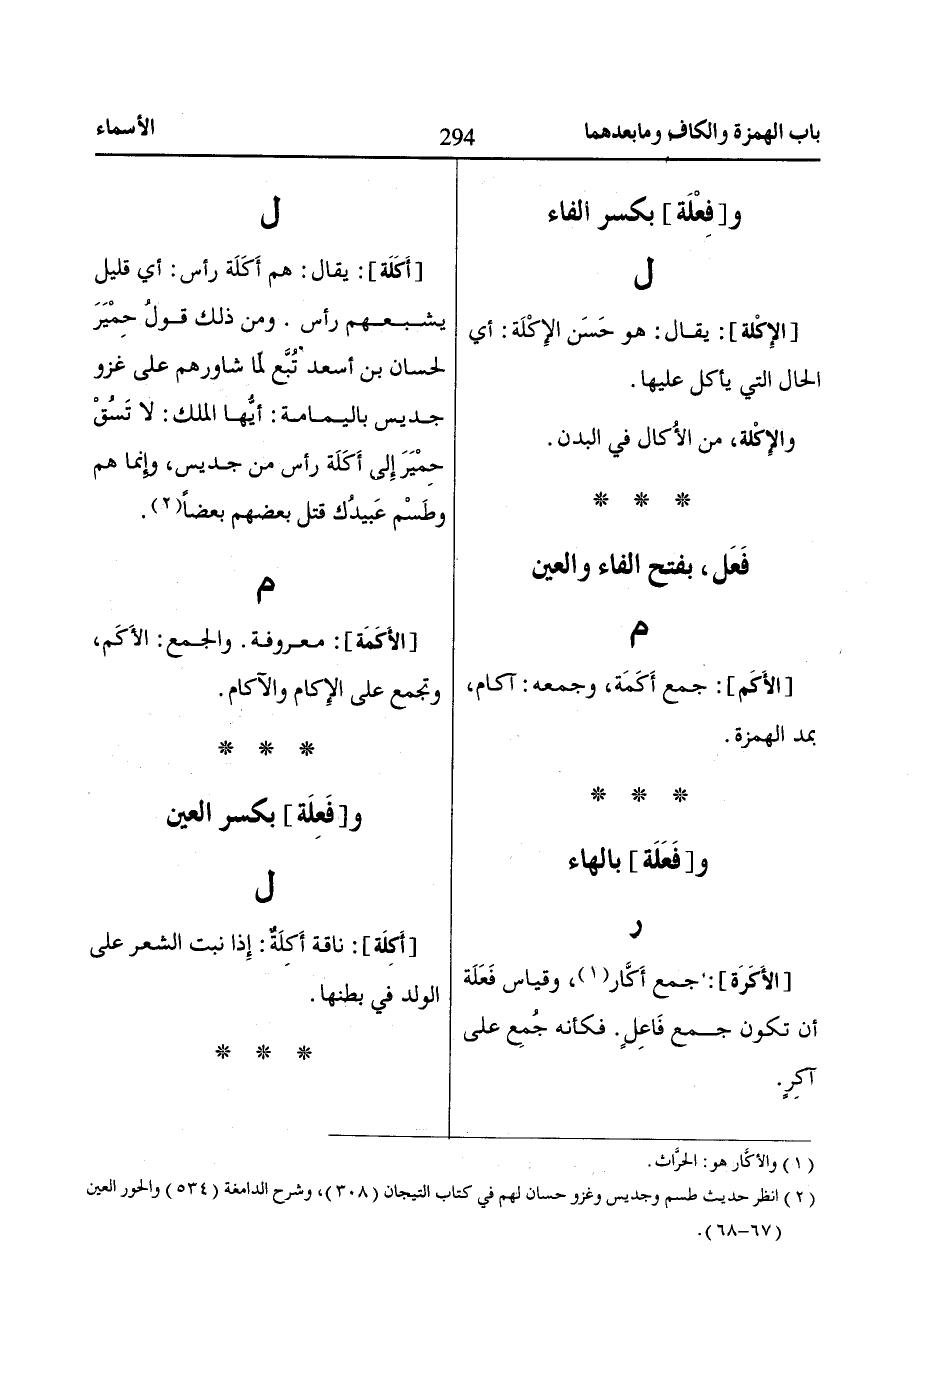 باب الهمزة والكاف ومابعدهما
294
الأسماء
و[فِعْلَة] بكسر الفاء
ل
[الإِكْلة]: يقال: هو حَسَن الإِكْلَة: أي
الحال التي يأكل عليها.
والإِكْلة، من الأُكال في البدن.
* * *
فَعَل، بفتح الفاء والعين
م
[الأَكَم]: جمع أَكَمَة، وجمعه: آكام،
بمد الهمزة.
* * *
و[فَعَلَة] بالهاء
ر
[الأَكَرَة]: جمع أكَّار(١)، وقياس فَعَلَة
أن تكون جمع فَاعِلٍ. فكأنه جُمِع على
آكِرٍ.
ل
[أَكَلَة]: يقال: هم أَكَلَة رأس: أي قليل
يشبعهم رأس. ومن ذلك قولُ حِمْيَرَ
لحسان بن أسعد تُبَّع لمّا شاورهم على غزو
جديس باليمامة: أيُّها الملك: لا تَسُقْ
حِمْيَرَ إلى أَكَلَة رأس من جديس، وإنما هم
وطَسْم عَبيدُك قتل بعضهم بعضاً(٢).
م
[الأَكَمَة]: معروفة. والجمع: الأَكَم،
وتجمع على الإِكام والآكام.
* * *
و[فَعِلَة] بكسر العين
ل
[أَكِلَة]: ناقة أَكِلَةٌ: إذا نبت الشعر على
الولد في بطنها.
* * *
(١) والأكَّار هو: الحرَّاث.
(٢) انظر حديث طسم وجديس وغزو حسان لهم في كتاب التيجان (٣٠٨)، وشرح الدامغة (٥٣٤) والحور العين
(٦٧–٦٨).